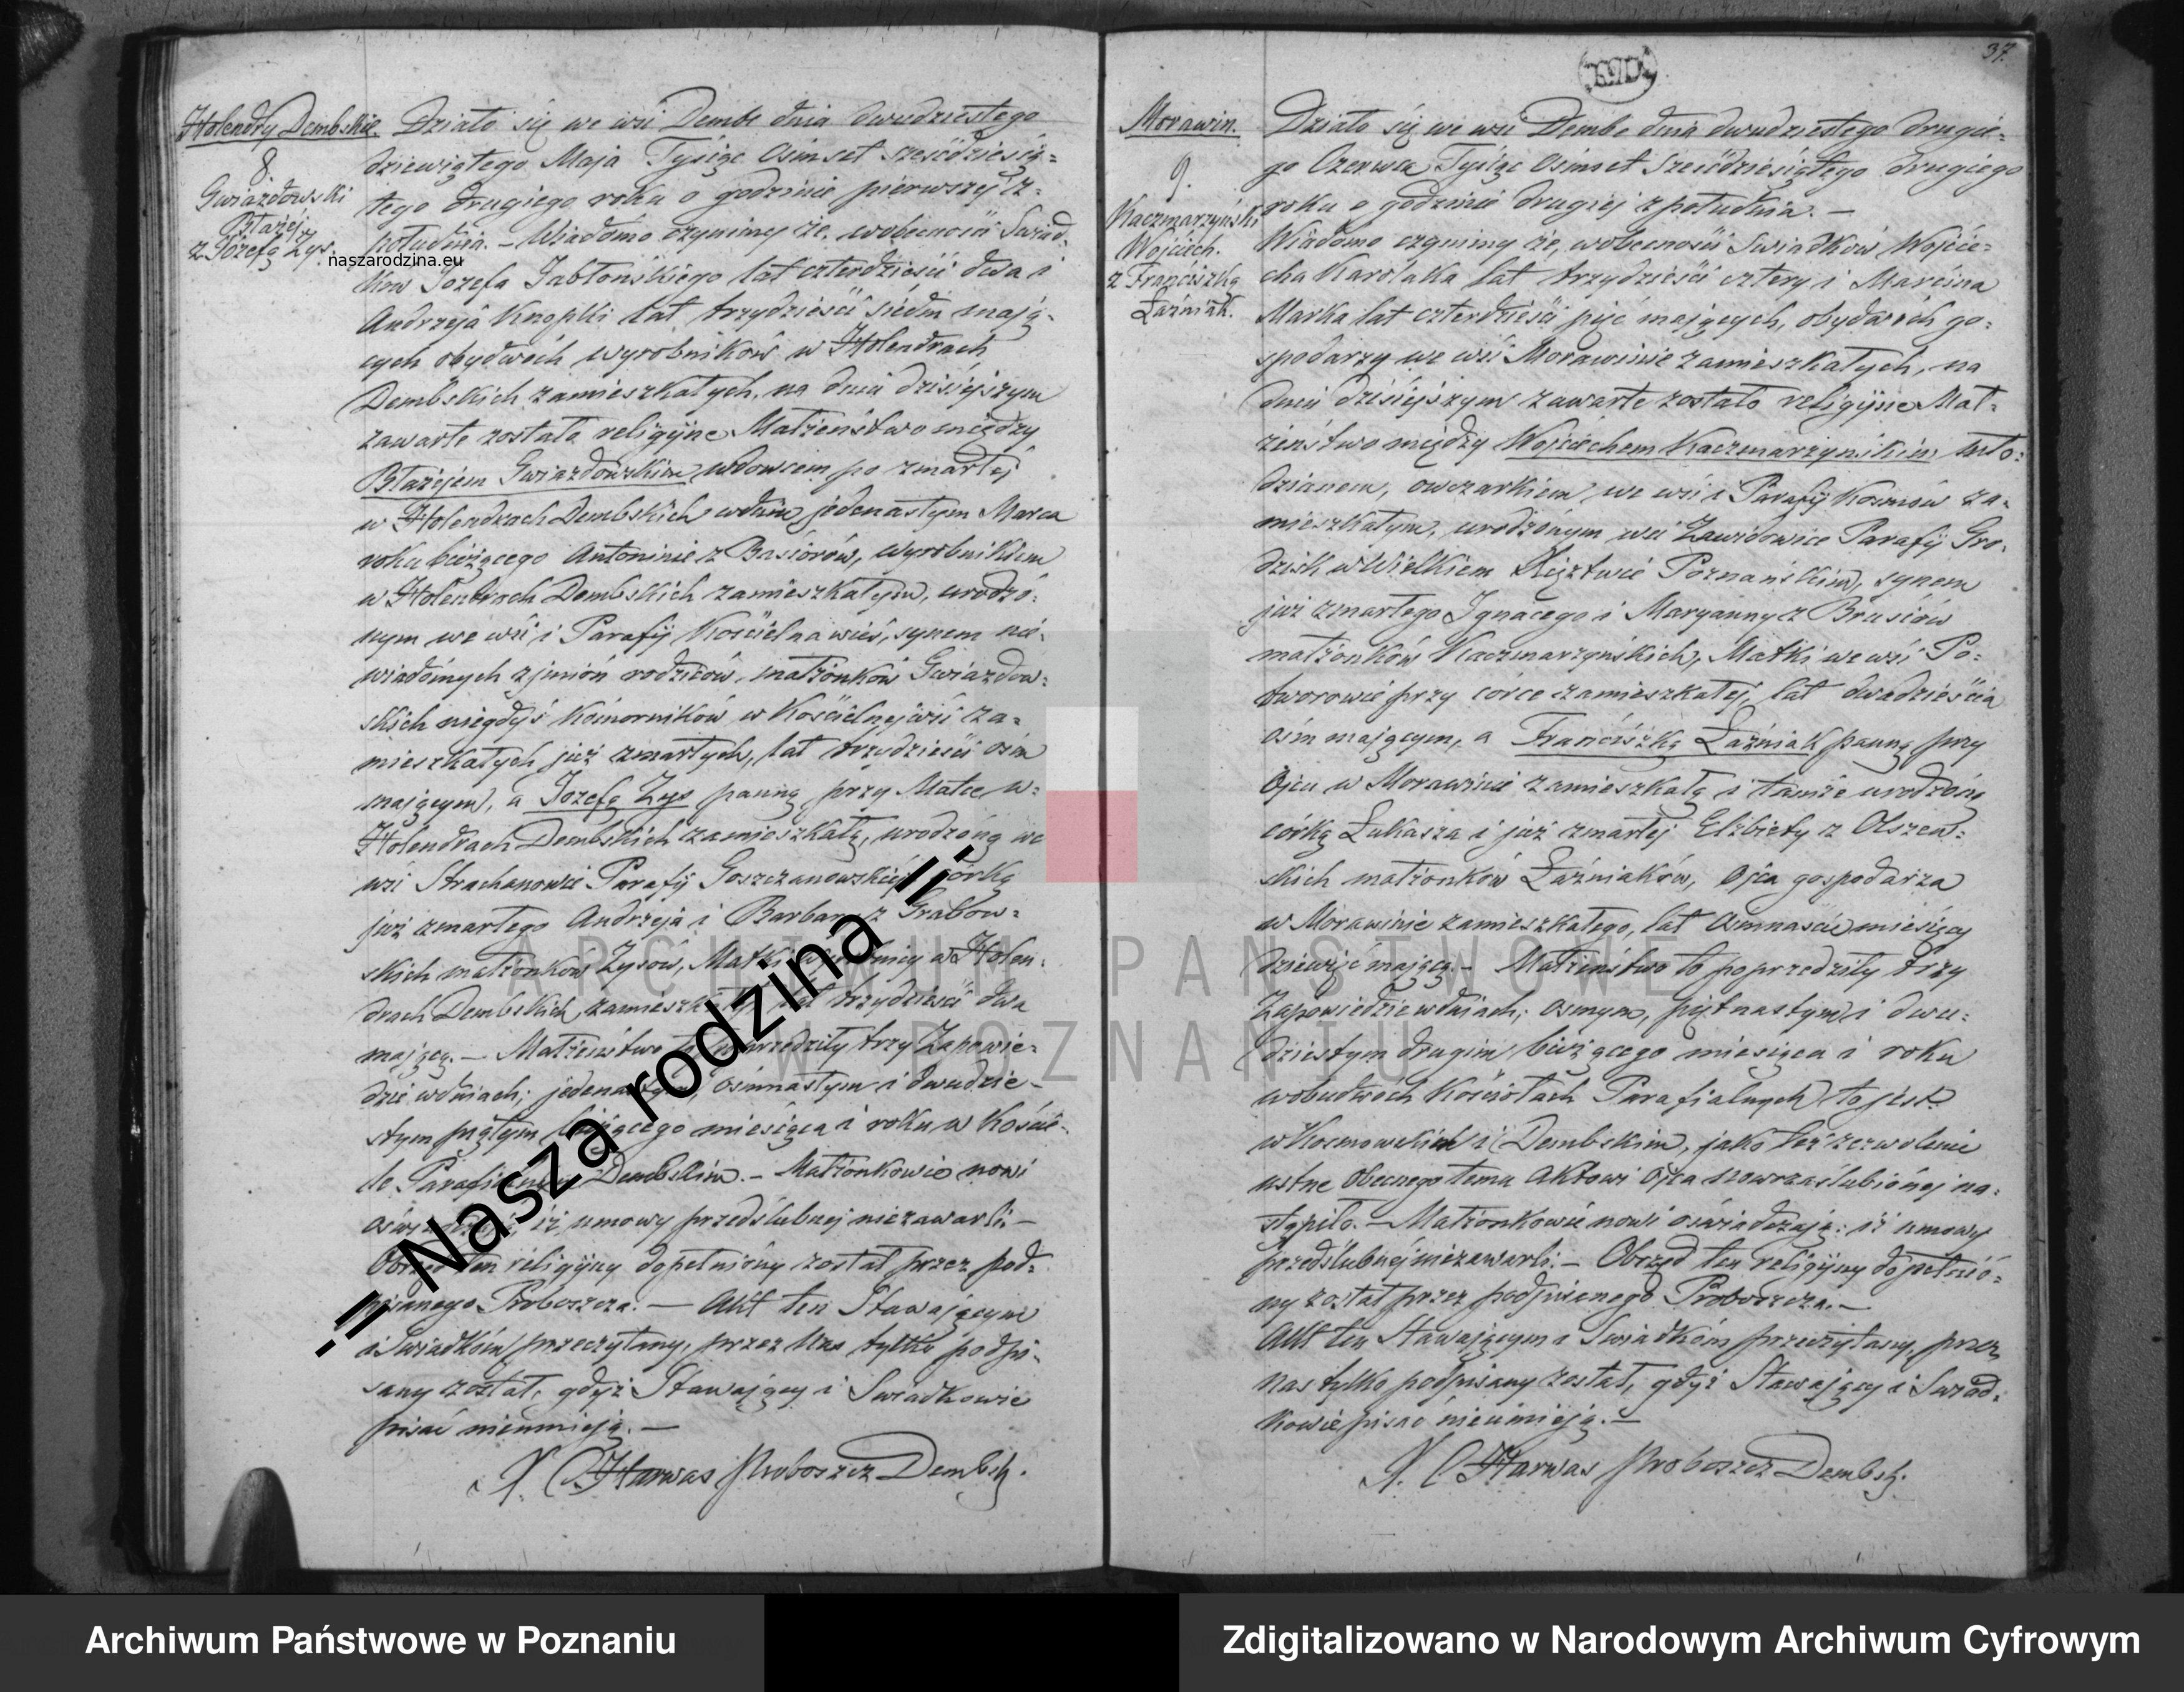 Holendry Dembskie
8.
Gwiazdowski
Błażej,
z Józefą Zys.
naszarodzina.eu
Działo się we wsi Dembe dnia dwudziestego
dziewiątego Maja Tysiąc Osimset sześćdziesią-
tego drugiego roku o godzinie pierwszej z-
południa. – Wiadomo czynimy że, wobecności Swiad-
kow Jozefa Jabłońskiego lat czterdzieści dwa i
Andrzeja Knopki lat trzydzieści siedm mają-
cych obydwóch wyrobników w Holendrach
Dembskich zamieszkałych, na dniu dzisiejszym
zawarte zostało religijne Małżeństwo między
Błażejem Gwiazdowskim, wdowcem po zmarłej
w Holendrach Dembskich wdniu jedenastym Marca
roku bieżącego Antoninie z Basiórów, wyrobnikiem
w Holendrach Dembskich zamieszkałym, urodzo-
nym we wsi i Parafij Kościelna wieś, synem nie-
wiadomych z jmion rodziców, małżonków Gwiazdow-
skich niegdyś komorników w Kościelnejwsi za-
mieszkałych już zmarłych, lat trzydzieści osim
mającym, a Jozefą Zys panną przy Matce w-
Holendrach Dembskich zamieszkałą, urodzoną we
wsi Strachanowie Parafij Goszczanowskiej córką
już zmarłego Andrzeja i Barbary z Grabow-
skich małżonków Zysów, Matki wyrobnicy w Holen-
drach Dembskich zamieszkałej, lat trzydzieści dwa
mającą. – Małżeństwo to poprzedziły trzy Zapowie-
dzie wdniach; jedenastym, osimnastym i dwudzie-
stym piątym bieżącego miesiąca i roku w Koście-
le Parafialnym Dembskim. – Małżonkowie nowi
oświadczają iż umowy przedślubnej niezawarli. –
Obrzęd ten religijny dopełniony został przez pod-
pisanego Proboszcza. – Akt ten Stawającym
i Swiadkom przeczytany, przez Nas tylko podpi-
sany został, gdyż Stawający i Swiadkowie
pisać nieumieją. –
X. C. Harwas Proboszcz Dembsk.
-=| Nasza rodzina |=-
37.
Morawin.
9.
Kaczmarzyński
Wojciech.
z Franciszką
Łaźniak.
Działo się we wsi Dembe dnia dwudziestego drugie-
go Czerwca Tysiąc Osimset Sześćdziesiątego drugiego
roku o godzinie drugiej z południa. –
Wiadomo czynimy że, wobecności Swiadków Wojcie-
cha Karolaka lat trzydzieści cztery i Marcina
Marka lat czterdzieści pięć mających, obydwóch go-
spodarzy we wsi Morawinie zamieszkałych, na
dniu dzisiejszym zawarte zostało religijne Mał-
żeństwo między Wojciechem Kaczmarzyńskim mło-
dzianem, owczarkiem we wsi i Parafij Kosmów za-
mieszkałym, urodzonym wsi Zawidowice Parafij Gro-
dzisk w Wielkiem Xięztwie Poznańskim, synem
już zmarłego Ignacego i Maryanny z Brusiów
małżonków Kaczmarzyńskich, Matki we wsi Po-
tworowie przy córce zamieszkałej, lat dwadzieścia
osim mającym, a Franciszką Łaźniak panną przy
Ojcu w Morawinie zamieszkałą i tamże urodzoną
córką Łukasza i już zmarłej Elżbiety z Olszew-
skich małżonków Łaźniaków, Ojca gospodarza
w Morawinie zamieszkałego, lat Osimnaście miesięcy
dziewięć mającą. – Małżeństwo to poprzedziły trzy
Zapowiedzie wdniach; osmym, piętnastym i dwu-
dziestym drugim bieżącego miesiąca i roku
wobudwóch Kościołach Parafialnych to jest
w Kosmowskim i Dembskim, jako też zezwolenie
ustne obecnego temu Aktowi Ojca nowozaślubionej na-
stąpiło. – Małżonkowie nowi oświadczają: iż umowy
przedślubnej niezawarli. – Obrzęd ten religijny dopełnio-
ny został przez podpisanego Proboszcza. –
Akt ten Stawającym i Swiadkom przeczytany, przez
nas tylko podpisany został, gdyż Stawający i Swiad-
kowie pisać nieumieją. –
X. C. Harwas Proboszcz Dembsk.
ARCHIWUM PAŃSTWOWE
W POZNANIU
Archiwum Państwowe w Poznaniu
Zdigitalizowano w Narodowym Archiwum Cyfrowym